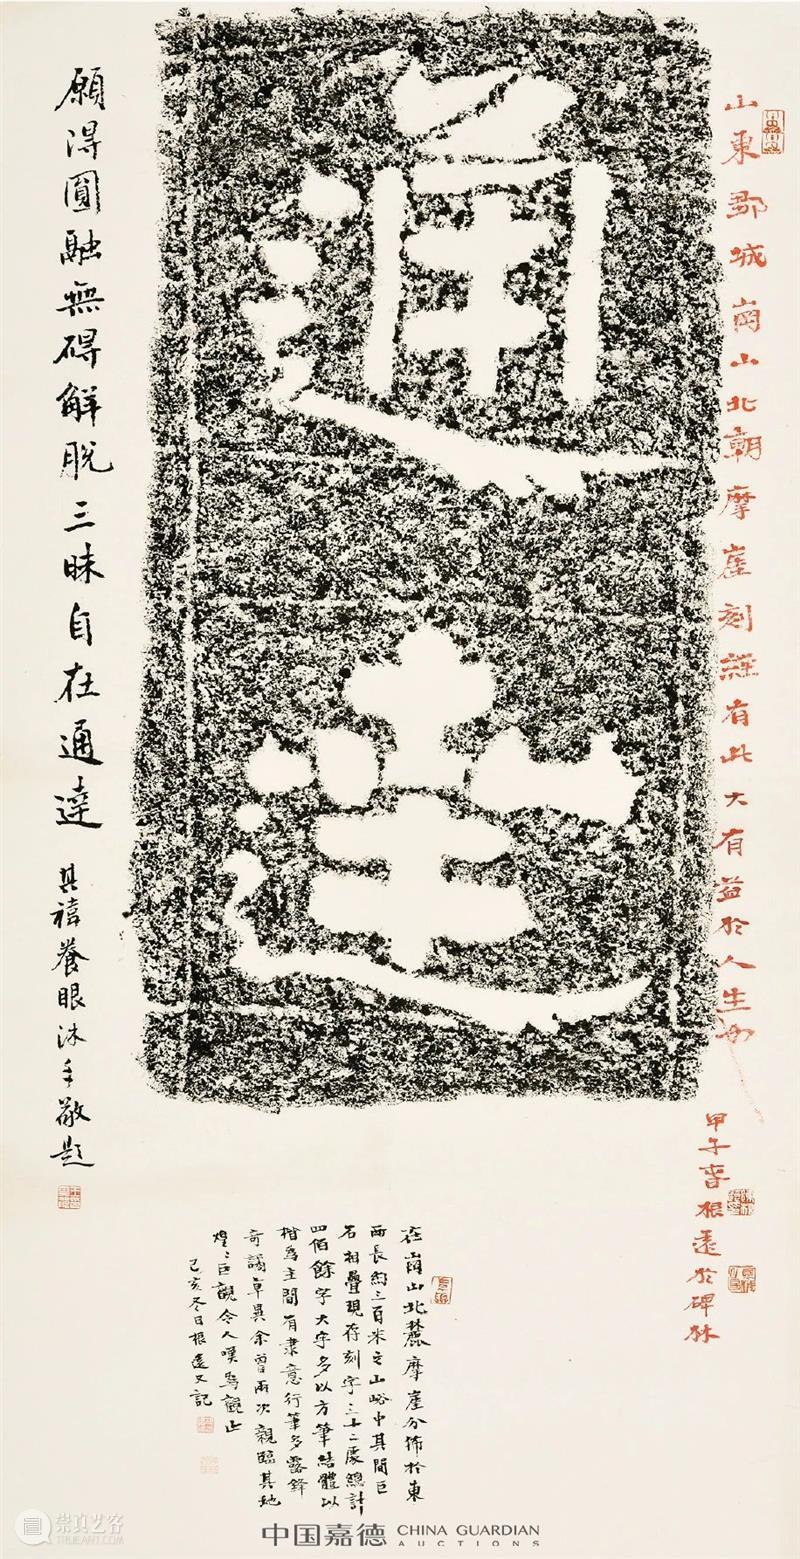 山東鄒城崗山北朝摩崖刻經有此大有益於人生也
甲午春根遠於碑林
通達
願得圓融無碍解脫三昧自在通達
其禧養眼沐手敬題
在崗山北麓摩崖分佈於東
西長約三百米之山峪中其間巨
石相疊現存刻字三十二處總計
四佰餘字大字多以方筆結體以
楷為主間有隸意行筆多露鋒
奇譎卓異余曾兩次親臨其地
煌〻巨觀令人嘆為觀止
己亥冬日根遠又記
中国嘉德 CHINA GUARDIAN
AUCTIONS
崇真艺客